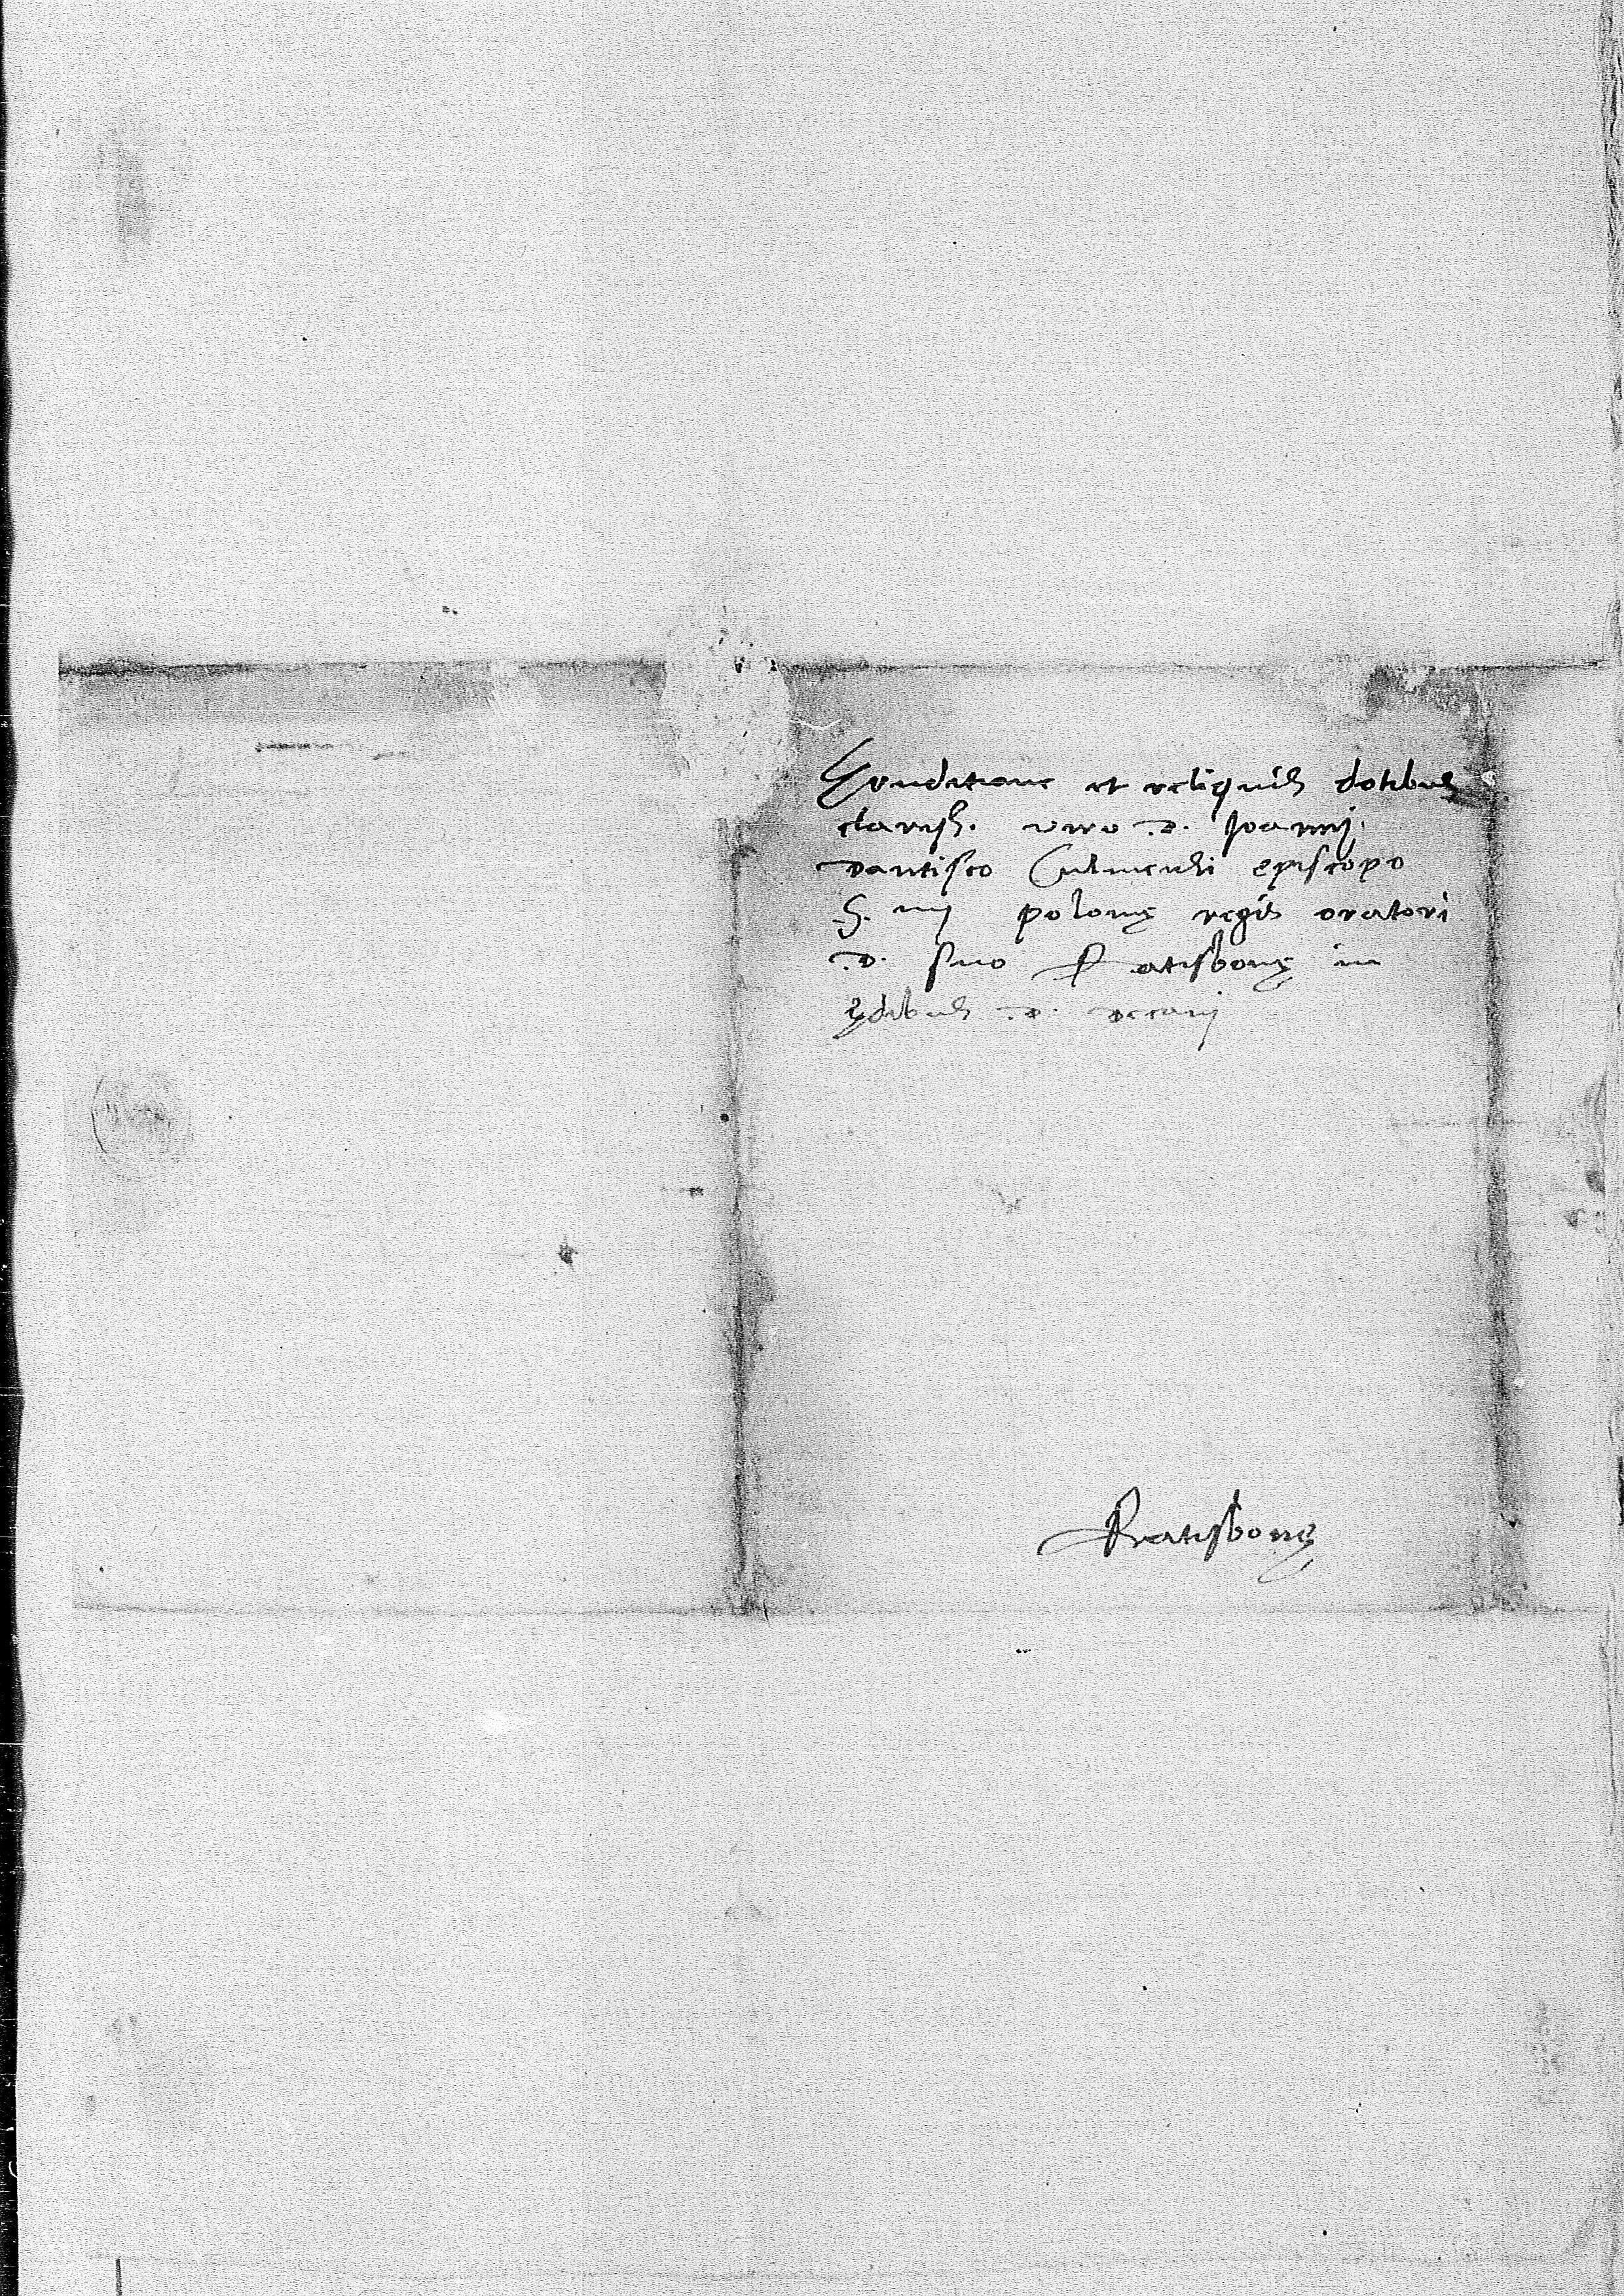 Eruditione et reliquis dotibus
clariss. viro .D. Joanni
Dantisco Culmensi episcopo
S. mi polonę regis oratori
.D. suo Ratisbonę in
ędibus .D. Decani
Ratisbonę